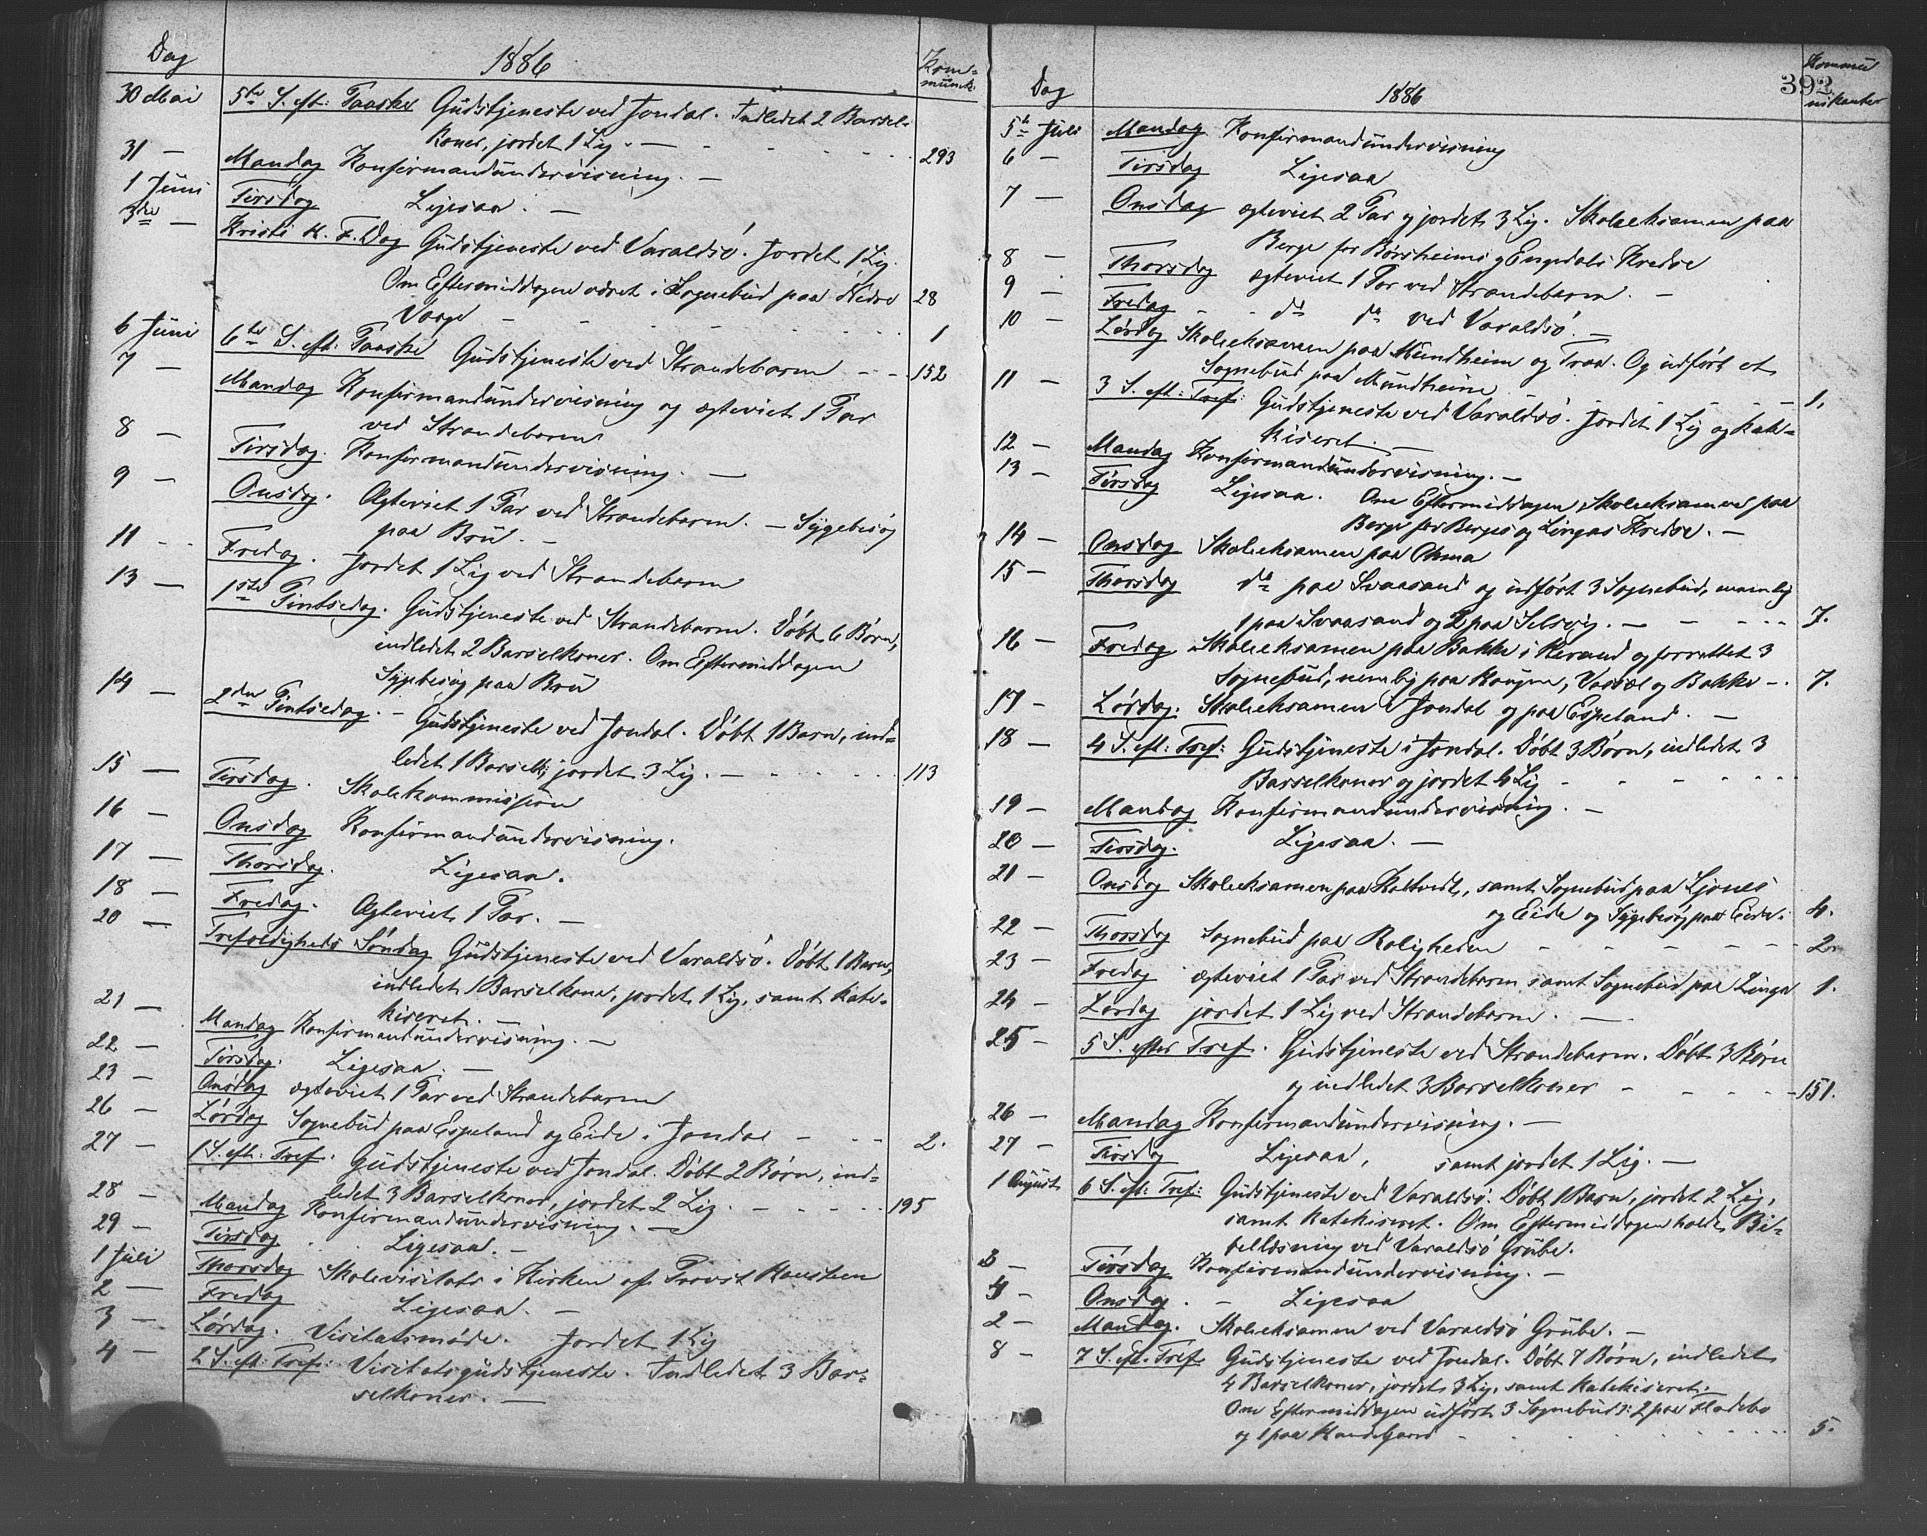 Dag 1886 Kom-
munik.
30 Mai 5te S. eft: Paaske Gudstjeneste ved Jondal. Indledet 2 Barsel-
koner, jordet 1 Lig. — 293
31 — Mandag Konfirmandundervisning. —
1 Juni Tirsdag Ligesaa. —
3die — Kristi H. F. Dag Gudstjeneste ved Varaldsö. Jordet 1 Lig.
Om Eftermiddagen været i Sognebud paa Nedre 28
Vaage 1
6 Juni 6te S. eft: Paaske Gudstjeneste ved Strandebarm - - 152
7 — Mandag Konfirmandundervisning og ægteviet 1 Par
ved Strandebarm
8 — Tirsdag. Konfirmandundervisning. —
9 — Onsdag. Ægteviet 1 Par ved Strandebarm. — Sygebesøg
paa Brü. —
11 - - Fredag. Jordet 1 Lig ved Strandebarm
13 — 1ste Pintsedag. Gudstjeneste ved Strandebarm. Döbt 6 Börn,
indledet 2 Barselkoner. Om Eftermiddagen
Sygebesøg paa Brü
14 — 2den Pintsedag. — Gudstjeneste ved Jondal. Döbt 1 Barn, ind-
ledet 1 Barselk, jordet 3 Lig. — 113
15 — Tirsdag. Skolekommission
16 — Onsdag Konfirmandundervisning.
17 — Thorsdag. Ligesaa.
18 — Fredag. Ægteviet 1 Par. —
20 — Trefoldigheds Söndag Gudstjeneste ved Varaldsö. Döbt 1 Barn,
indledet 1 Barselkone, jordet 1 Lig, samt kate-
kiseret. —
21 — Mandag Konfirmandundervisning. —
22 — Tirsdag. Ligesaa. —
23 — Onsdag ægteviet 1 Par ved Strandebarm
26 — Lördag Sognebud paa Espeland og Eide i Jondal — - - 2.
27 — 1 S. eft: Tref. Gudstjeneste ved Jondal. Döbt 2 Börn, ind-
ledet 3 Barselkoner, jordet 2 Lig. — 195
28 — Mandag Konfirmandundervisning. —
29 — Tirsdag Ligesaa. —
1 Juli Thorsdag Skolevisitats i Kirken af Provst
2 — Fredag Ligesaa. —
3 — Lördag. Visitatsmöde. Jordet 1 Lig
4 — 2 S. eft: Tref: Visitatsgudstjeneste. Indledet 3 Bar-
selkoner. —
Dag 1886 392 Kommu
nikanter
5te Juli Mandag Konfirmandundervisning
6 — Tirsdag Ligesaa
7 — Onsdag ægteviet 2 Par og jordet 3 Lig. Skoleeksamen paa
Berge for Börsheims og Engedals Kredse
8 — Thorsdag ægteviet 1 Par ved Strandebarm. —
9 — Fredag do do ved Varaldsö. —
10 — Lördag Skoleeksamen paa Mundheim og Traa. Og udfört et
Sognebud paa Mundheim 1.
11 — 3 S. eft: Tref: Gudstjeneste ved Varaldsö. Jordet 1 Lig og kate-
kiseret. —
12 — Mandag Konfirmandundervisning. —
13 — Tirsdag Ligesaa. Om Eftermiddagen Skoleeksamen paa
Berge for Berges og Lingas Kredse. —
14 — Onsdag Skoleeksamen paa Omma
15 — Thorsdag do paa Svaasand og udfört 3 Sognebud, nemlig
1 paa Svaasand og 2 paa Selsvig. — 7.
16 — Fredag Skoleeksamen paa Bakke i Kravand og forrettet 3
Sognebud, nemlig paa Vassel og Bakke — 7.
17 — Lördag. Skoleeksamen i Jondal og paa Espeland. —
18 — 4 S. eft: Tref: Gudstjeneste i Jondal. Döbt 3 Börn, indledet 3
Barselkoner og jordet 4 Lig
19 — Mandag Konfirmandundervisning. —
20 — Tirsdag. Ligesaa. —
21 — Onsdag Skoleeksamen paa Kaltvedt, samt Sognebud paa Ljones
og Eide og Sygebesøg paa Eide. 4.
22 — Thorsdag Sognebud paa Roligheden 2.
23 — Fredag ægteviet 1 Par ved Strandebarm samt Sognebud paa Linga 1.
24 — Lördag jordet 1 Lig ved Strandebarm. —
25 — 5 S. efter Tref. Gudstjeneste ved Strandebarm. Döbt 3 Börn
og indledet 3 Barselkoner 151.
26 — Mandag Konfirmandundervisning. —
27 — Tirsdag Ligesaa, samt jordet 1 Lig. —
1 August 6 S. eft: Tref: Gudstjeneste ved Varaldsö. Döbt 1 Barn, jordet 2 Lig,
samt katekiseret. Om Eftermiddagen holdt Bi-
bellæsning ved Varaldsö Grube.
3 — Tirsdag Konfirmandundervisning. —
4 — Onsdag. — Ligesaa
2 — Mandag. Skoleeksamen ved Varaldsö Grube. —
8 — 7 S. eft. Tref Gudstjeneste ved Jondal. Döbt 7 Börn, indledet
4 Barselkoner, jordet 3 Lig, samt katekiseret. —
Om Eftermiddagen udfört 3 Sognebud: 2 paa Fladebö
og 1 paa 5.